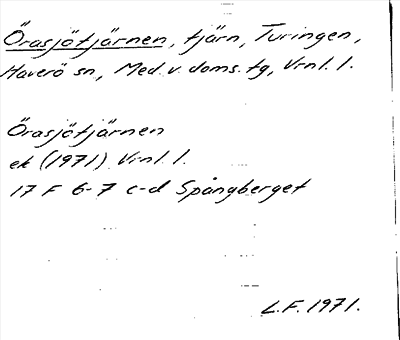 Örasjötjärnen, tjärn, Turingen,
Haverö sn, Med. v. doms. tg, Vrnl. l.
Örasjötjärnen
ek (1971) Vrnl. l.
17 F 6-7 c-d Spångberget
L.F. 1971.